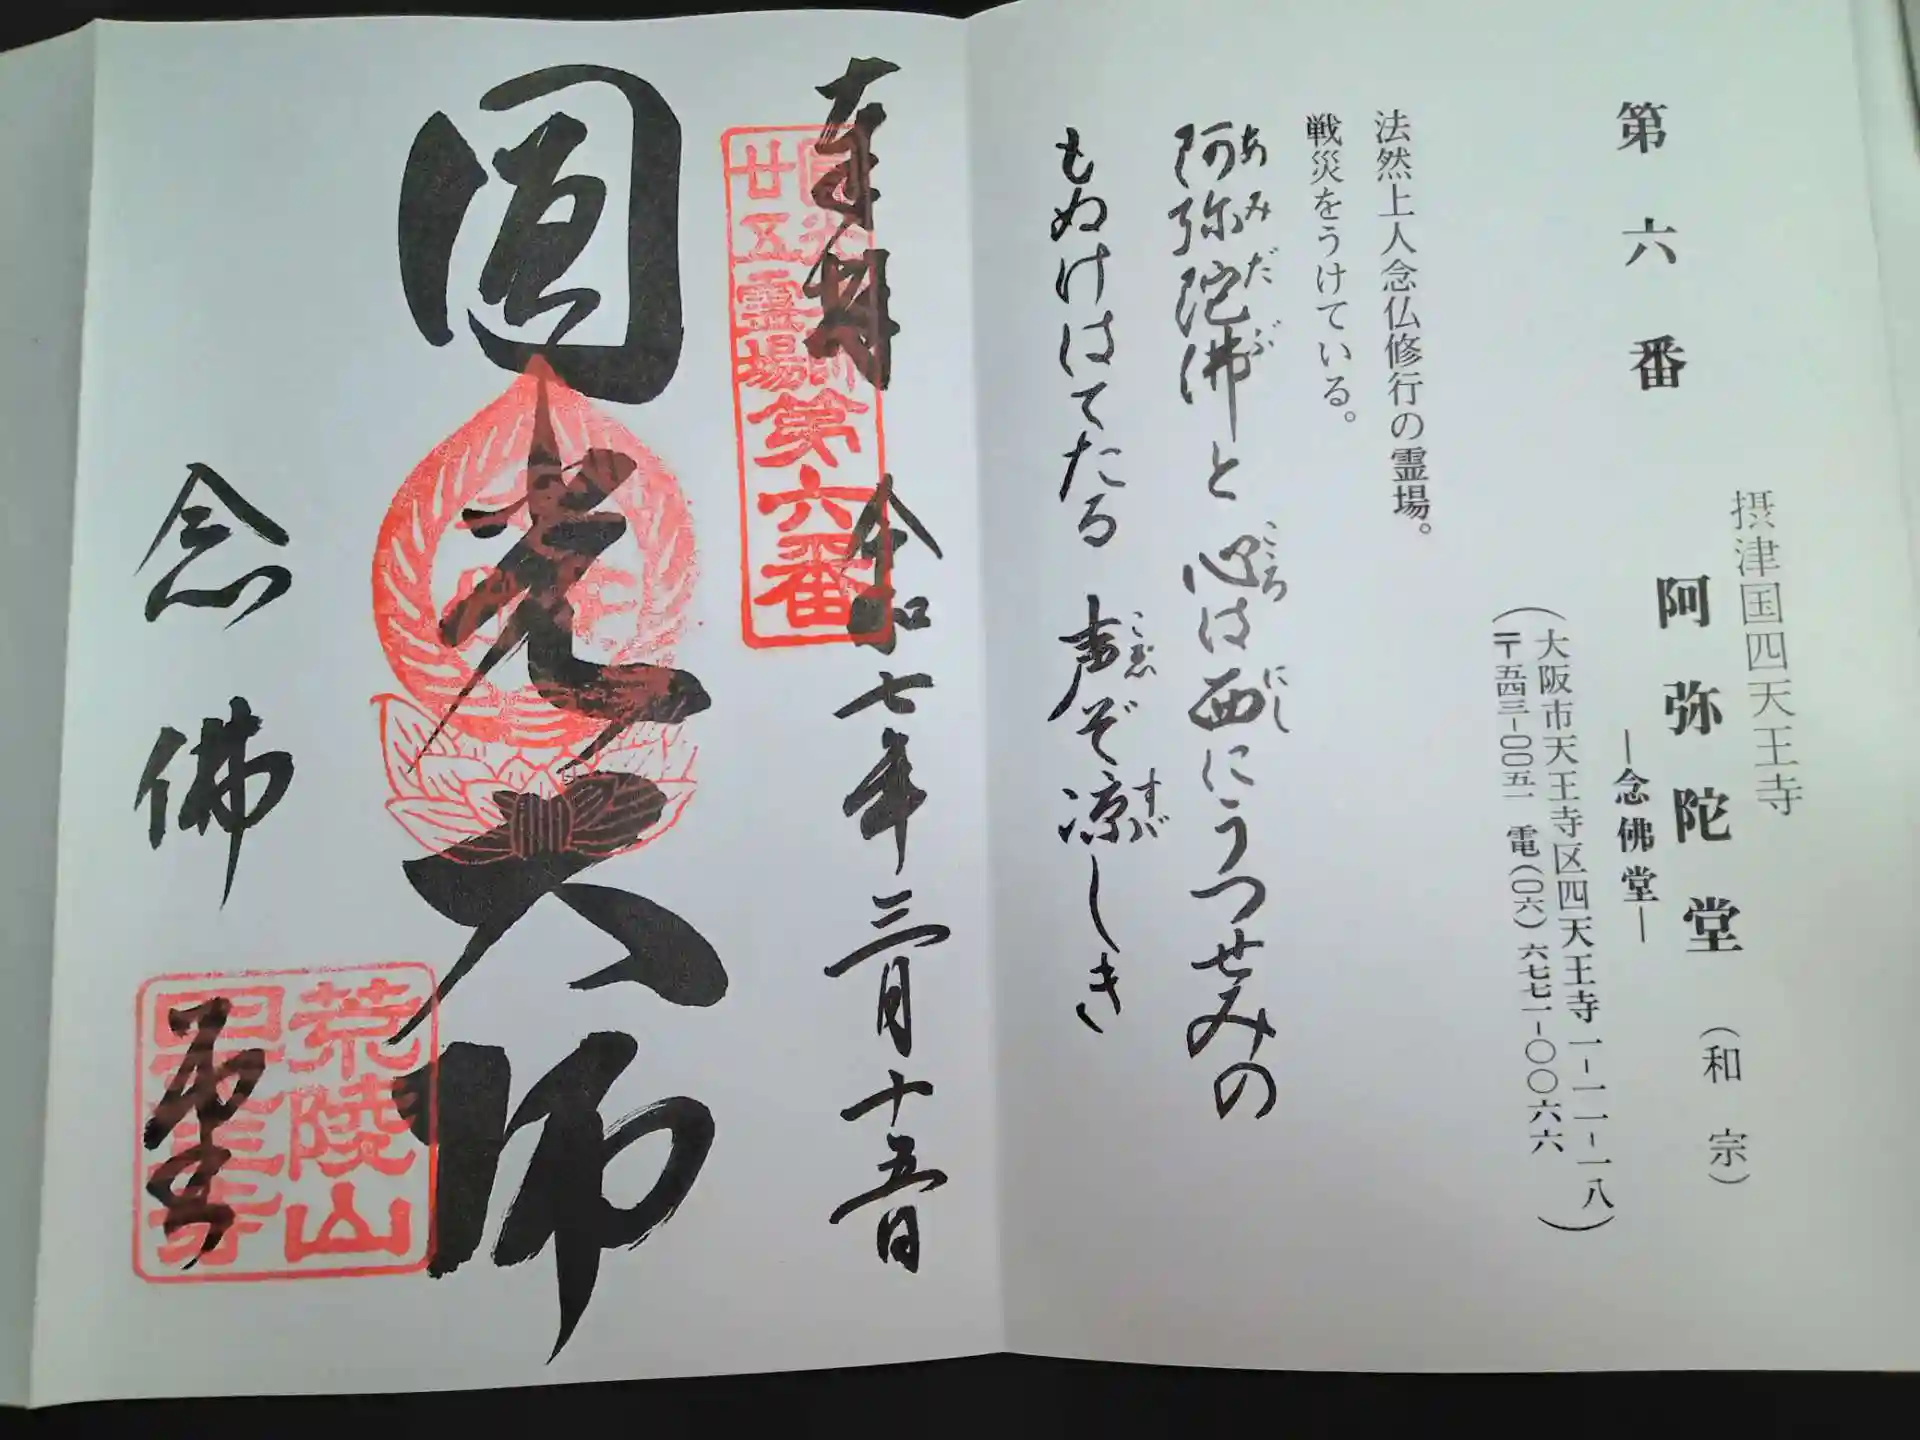 第六番
摂津国四天王寺
阿弥陀堂（和宗）
―念佛堂―
（大阪市天王寺区四天王寺一-一一-一八）
〒五四三-〇〇五一 電(〇六)六七七一-〇〇六六
法然上人念仏修行の霊場。
戦災をうけている。
阿弥陀佛と 心は西にうつせみの
あみだぶ こころ にし
もぬけはてたる 声ぞ涼しき
こゑ すゞ
奉拝 令和七年三月十五日
廿五霊場第六番
圓光大師
念佛堂
荒陵山
四天王寺